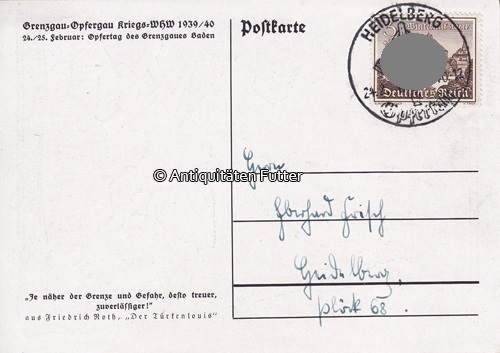 Grenzgau-Opfergau Kriegs-WHW 1939/40
24./25. Februar: Opfertag des Grenzgaues Baden
Postkarte
HEIDELBERG
Deutsches Reich
© Antiquitäten Futter
Herrn
Eberhard Frisch
Heidelberg,
Plöck 68.
„Je näher der Grenze und Gefahr, desto treuer,
zuverlässiger!"
aus Friedrich Roth, „Der Türkenlouis"